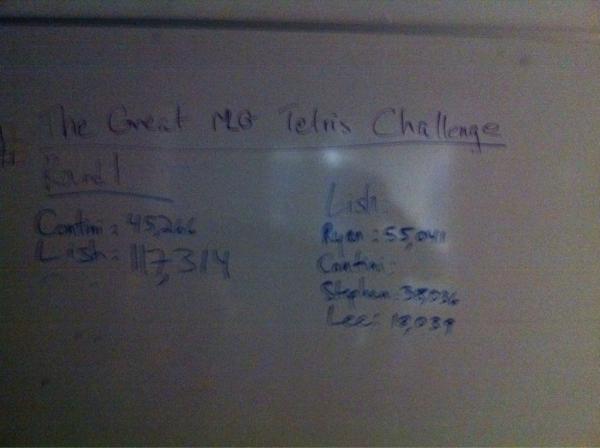 The Great MLG Tetris Challenge
Round 1
Contini: 45,266
Lish: 117,314
Lish:
Ryan: 55,041
Contini:
Stephan: 38,036
Lee: 18,039